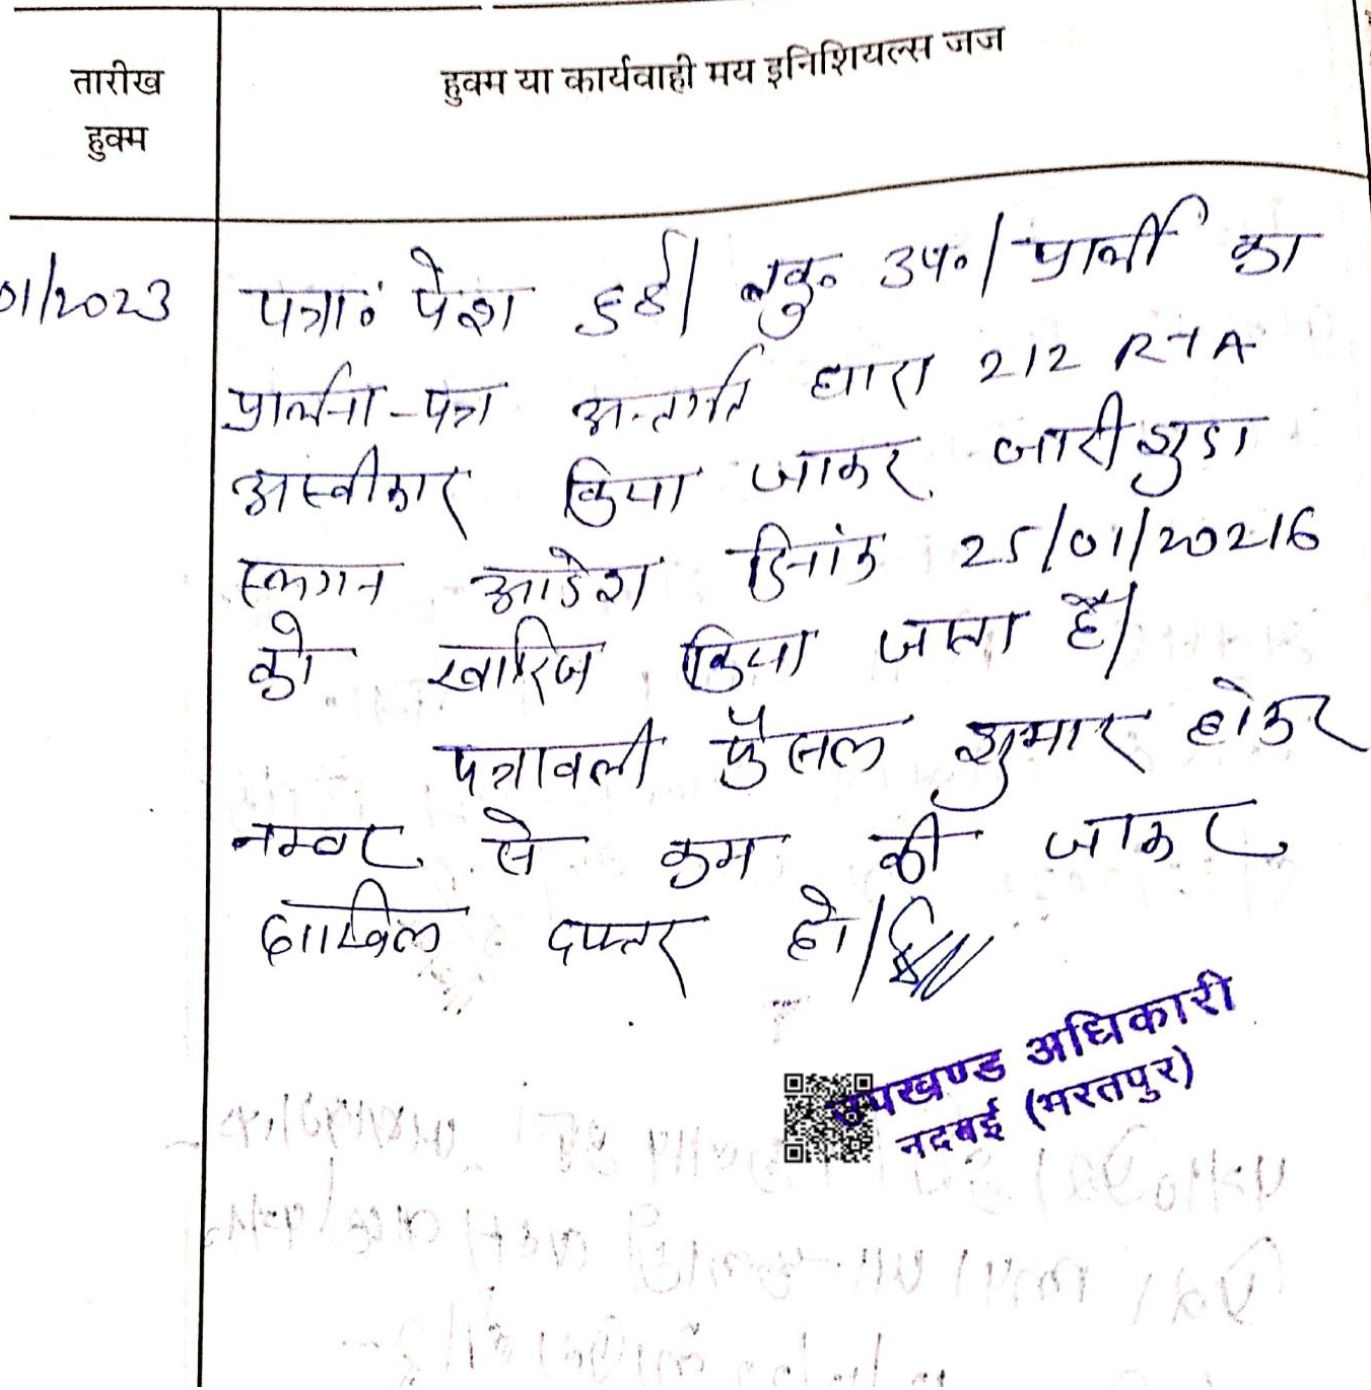 तारीख
हुक्म
हुक्म या कार्यवाही मय इनिशियल्स जज
01/2023
पत्रा० पेश हुई। वकु० उप०। प्रार्थी का
प्रार्थना-पत्र अन्तर्गत धारा 212 RTA
अस्वीकार किया जाकर जारीशुदा
स्थगन आदेश दिनांक 25/01/20216
को खारिज किया जाता है।
पत्रावली फैसल शुमार होकर
नम्बर से कम की जाकर
दाखिल दफ्तर हो।
उपखण्ड अधिकारी
नदबई (भरतपुर)